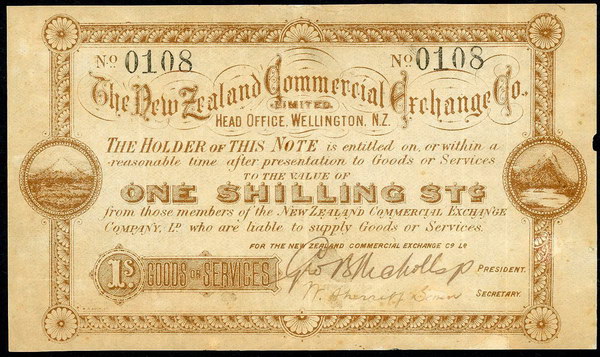 No 0108 No 0108
The New Zealand Commercial Exchange Co.
LIMITED.
HEAD OFFICE, WELLINGTON, N.Z.
THE HOLDER OF THIS NOTE is entitled on, or within a
reasonable time after presentation to Goods or Services
TO THE VALUE OF
ONE SHILLING STG
from those members of the NEW ZEALAND COMMERCIAL EXCHANGE
COMPANY, LD who are liable to supply Goods or Services.
FOR THE NEW ZEALAND COMMERCIAL EXCHANGE CO LD
1S. GOODS OR SERVICES Geo B Nicholls PRESIDENT.
SECRETARY.